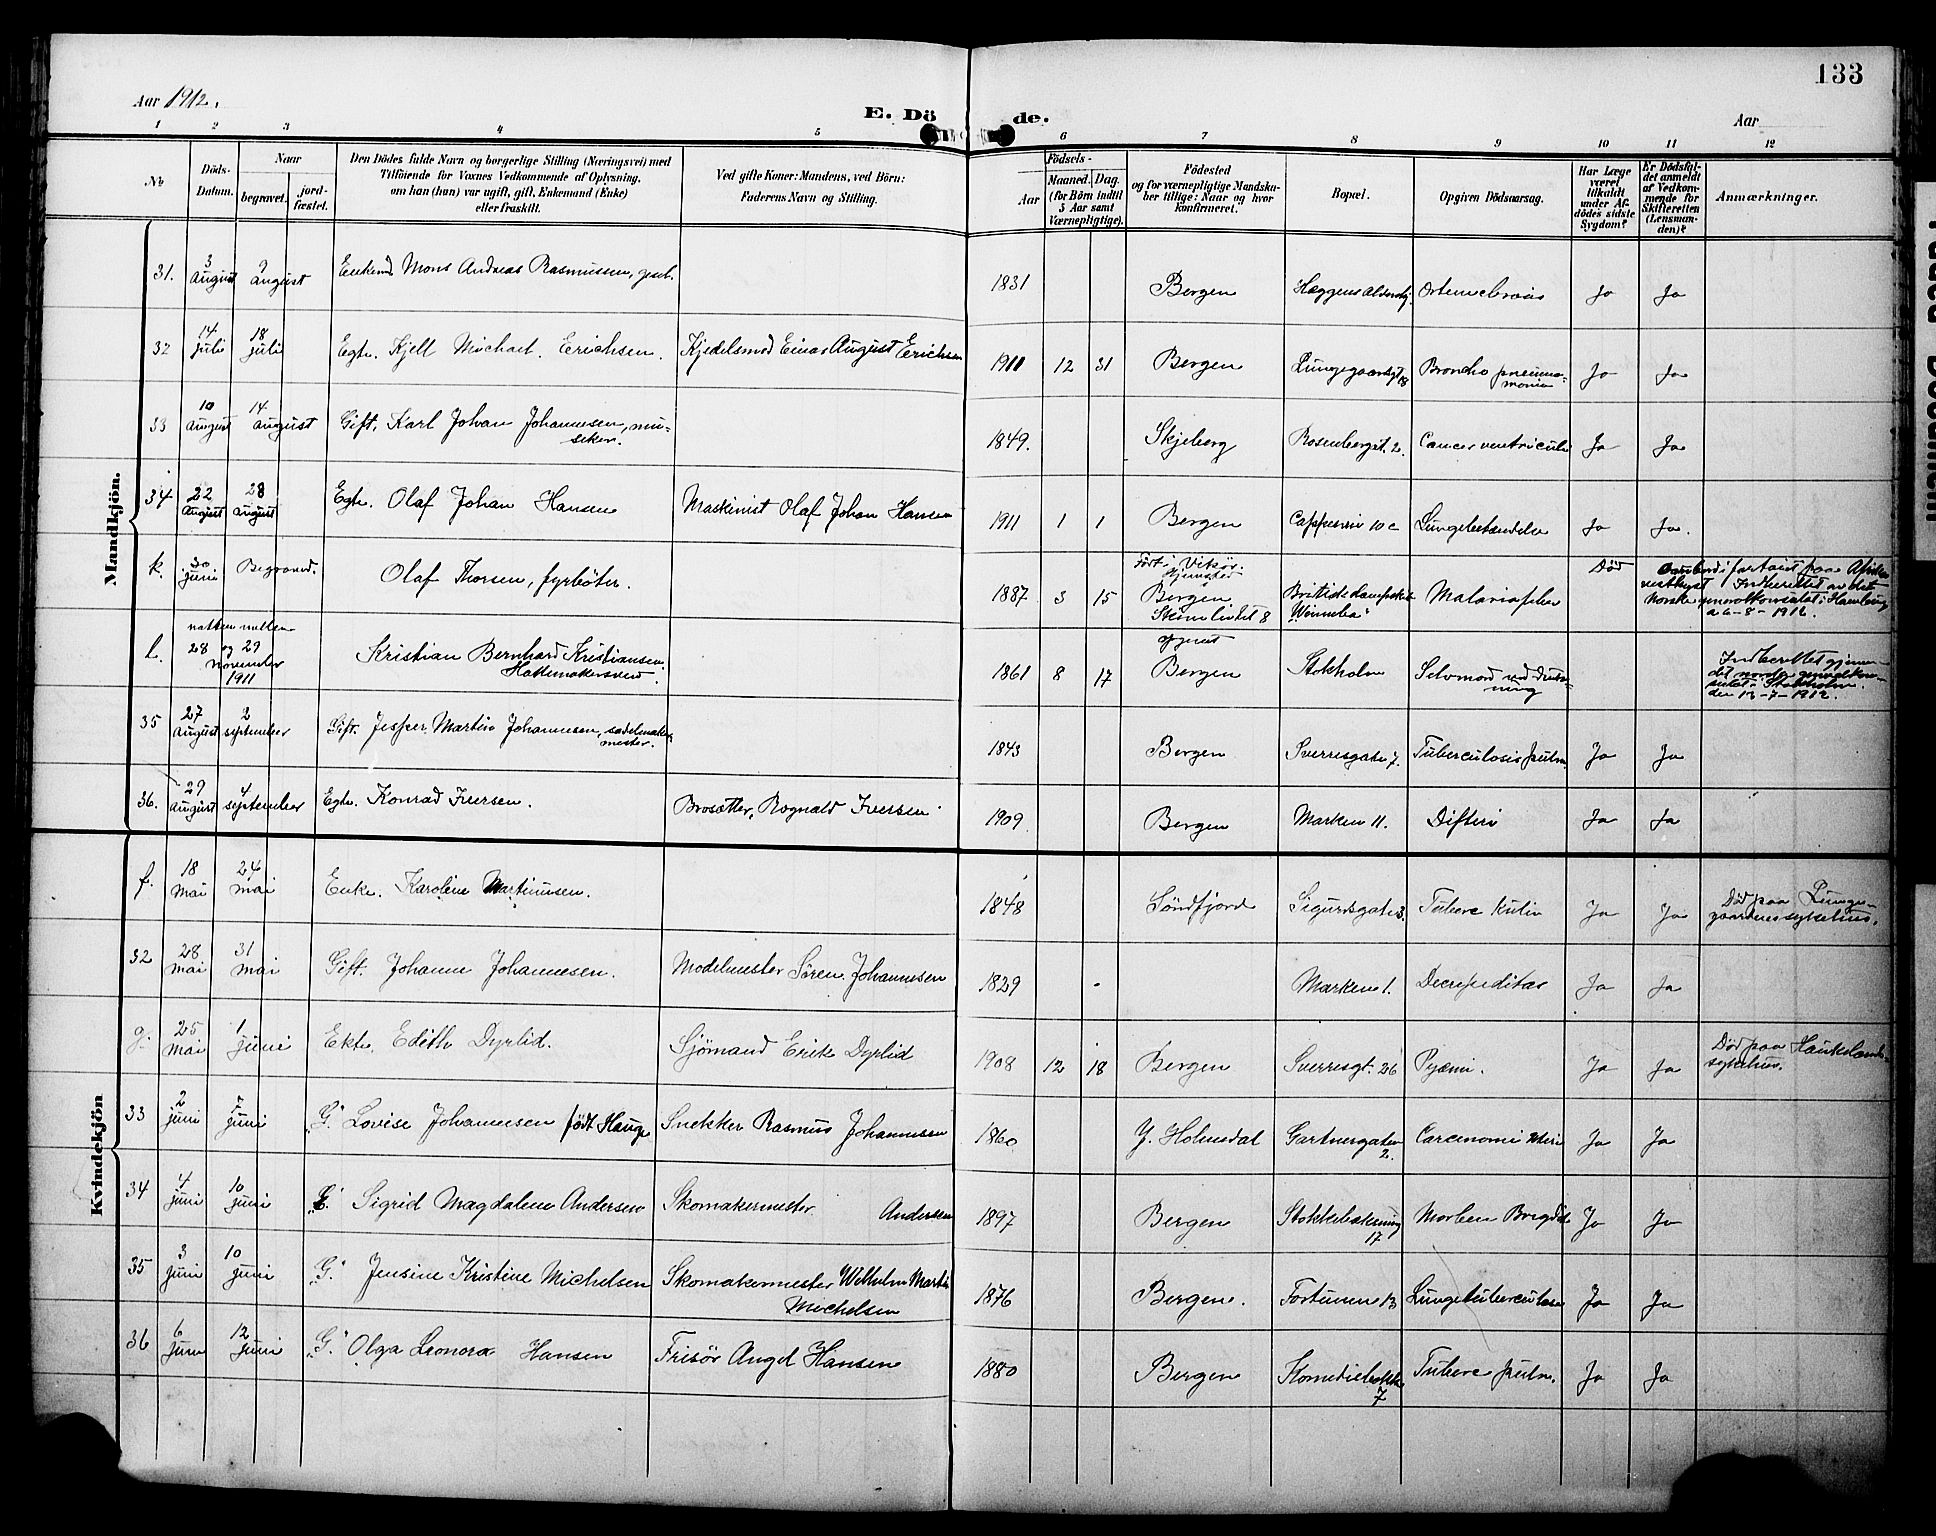 133
Aar 1912.
E. Döde.
Aar
1 2 3 4 5 6 7 8 9 10 11 12
No
Döds-Datum.
Naar
begravet.
jord-fæstet.
Den Dödes fulde Navn og borgerlige Stilling (Næringsvei) med
Tilföiende for Voxnes Vedkommende af Oplysning,
om han (hun) var ugift, gift, Enkemand (Enke)
eller fraskilt.
Ved gifte Koner: Mandens, ved Börn:
Faderens Navn og Stilling.
Födsels-
Aar
Maaned. Dag.
(for Börn indtil
5 Aar samt
Værnepligtige).
Födested
og for værnepligtige Mandskaber tillige: Naar og hvor
konfirmeret.
Bopæl.
Opgiven Dödsaarsag.
Har Læge
været
tilkaldt
under Afdödes sidste
Sygdom?
Er Dödsfaldet anmeldt
af Vedkommende for
Skifteretten
(Lensmanden)?
Anmærkninger.
Mandkjön.
31. 3 August 9 August Enkemd Mons Andreas Rasmussen, 1831 Bergen Ja Ja
32 14 juli 18 juli Egte. Kjell Michael. Erichsen. Kjedelsmed Einar August Erichsen 1911 12 31 Bergen Lungegaardsgt 18 Broncho pneumomonia Ja Ja
33 10 August 14 August Gift. Karl Johan Johannesen, musiker. 1849. Skjeberg Rosenbergst. 2. Cancer ventriculi Ja Ja
34 22 August 28 August Egte. Olaf Johan Hansen Maskinist Olaf Johan Hansen 1911 1 1 Bergen Cappesvei 10 c Lungebetændelse Ja Ja.
k. 30 juni Begravet. Olaf Thorsen, fyrböter. 1887 3 15 Hjemsted Bergen 8 Malariafeber Død Indberettet av det norske generalkonsulat i Hamburg a 6-8-1912.
l. natten mellem 28 og 29 November 1911 Kristian Bernhard Kristiansen. Hattemakersvend 1861 8 17 Bergen Stokholm Selvmord ved drukning Indberettet gjennem det norske generalkonsulat i Stokholm den 13-7-1912.
35 27 August 2 september Gift. Jesper Martin Johannesen, sadelmakermester. 1843 Bergen Sverresgate 7. Tuberculosis pulm. Ja Ja
36. 29 August 4 september Egte. Konrad Iversen. Brosætter, Rognald Iversen 1909 Bergen Marken 11. Difteri Ja Ja
Kvindekjön
f. 18 Mai 24 Mai Enke. Karoline Martinusen. 1848 Söndfjord Sigurdsgate 3. Tuberc Kutin Ja Ja Död paa Lungegaardenes sykehus.
32 28 Mai 31 Mai Gift. Johanne Johannesen. Modelmester Sören Johannesen 1829 Marken 1. Decrepiditas Ja Ja
g. 25 Mai 1 juni Ekte. Edith Dyrlid. Sjömand Erik Dyrlid 1908 12 18 Bergen Sverresgt. 26 Pyæmi. Ja Ja Död paa Haukelands sykehus.
33 2 juni 7 juni „G." Lovise Johannesen født Hauge Snekker Rasmus Johannesen 1860 Y. Holmedal Gartnergaten 2. Carcinomi Uteri Ja Ja
34 4 juni 10 juni Sigrid Magdalene Andersen Skomakermester Andersen 1897 Bergen 17 Morben Brigdt Ja Ja
35 3 juni 10 juni „G." Jensine Kristine Michelsen Skomakermester Wilhelm Martin Michelsen 1876 Bergen. Fortunen 13 Lungetuberculose Ja Ja
36 6 juni 12 juni „G." Olga Leonora Hansen Frisör Angel Hansen 1880 Bergen 7 Tuberc pulm. Ja Ja